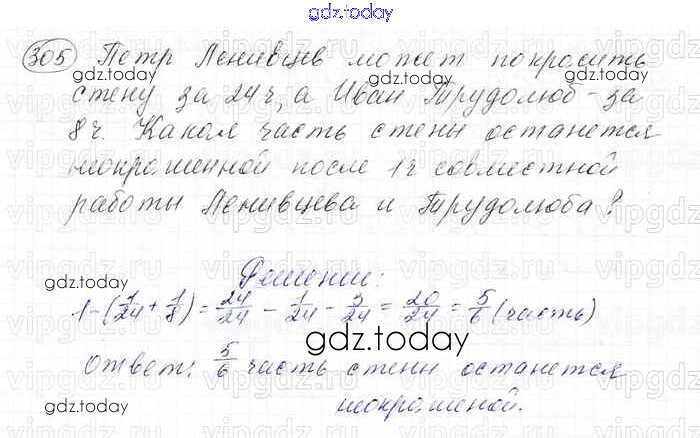 gdz.today
305 Петр Ленивцев может покрасить
gdz.today gdz.today
стену за 24 ч, а Иван Трудолюб - за
8 ч. Какая часть стены останется
неокрашенной после 1 ч совместной
работы Ленивцева и Трудолюба?
gdz.today gdz.today
Решение:
1 - (1/24 + 1/8) = 24/24 - 1/24 - 3/24 = 20/24 = 5/6 (часть)
gdz.today
Ответ: 5/6 часть стены останется
gdz.today неокрашеной.
gdz.today